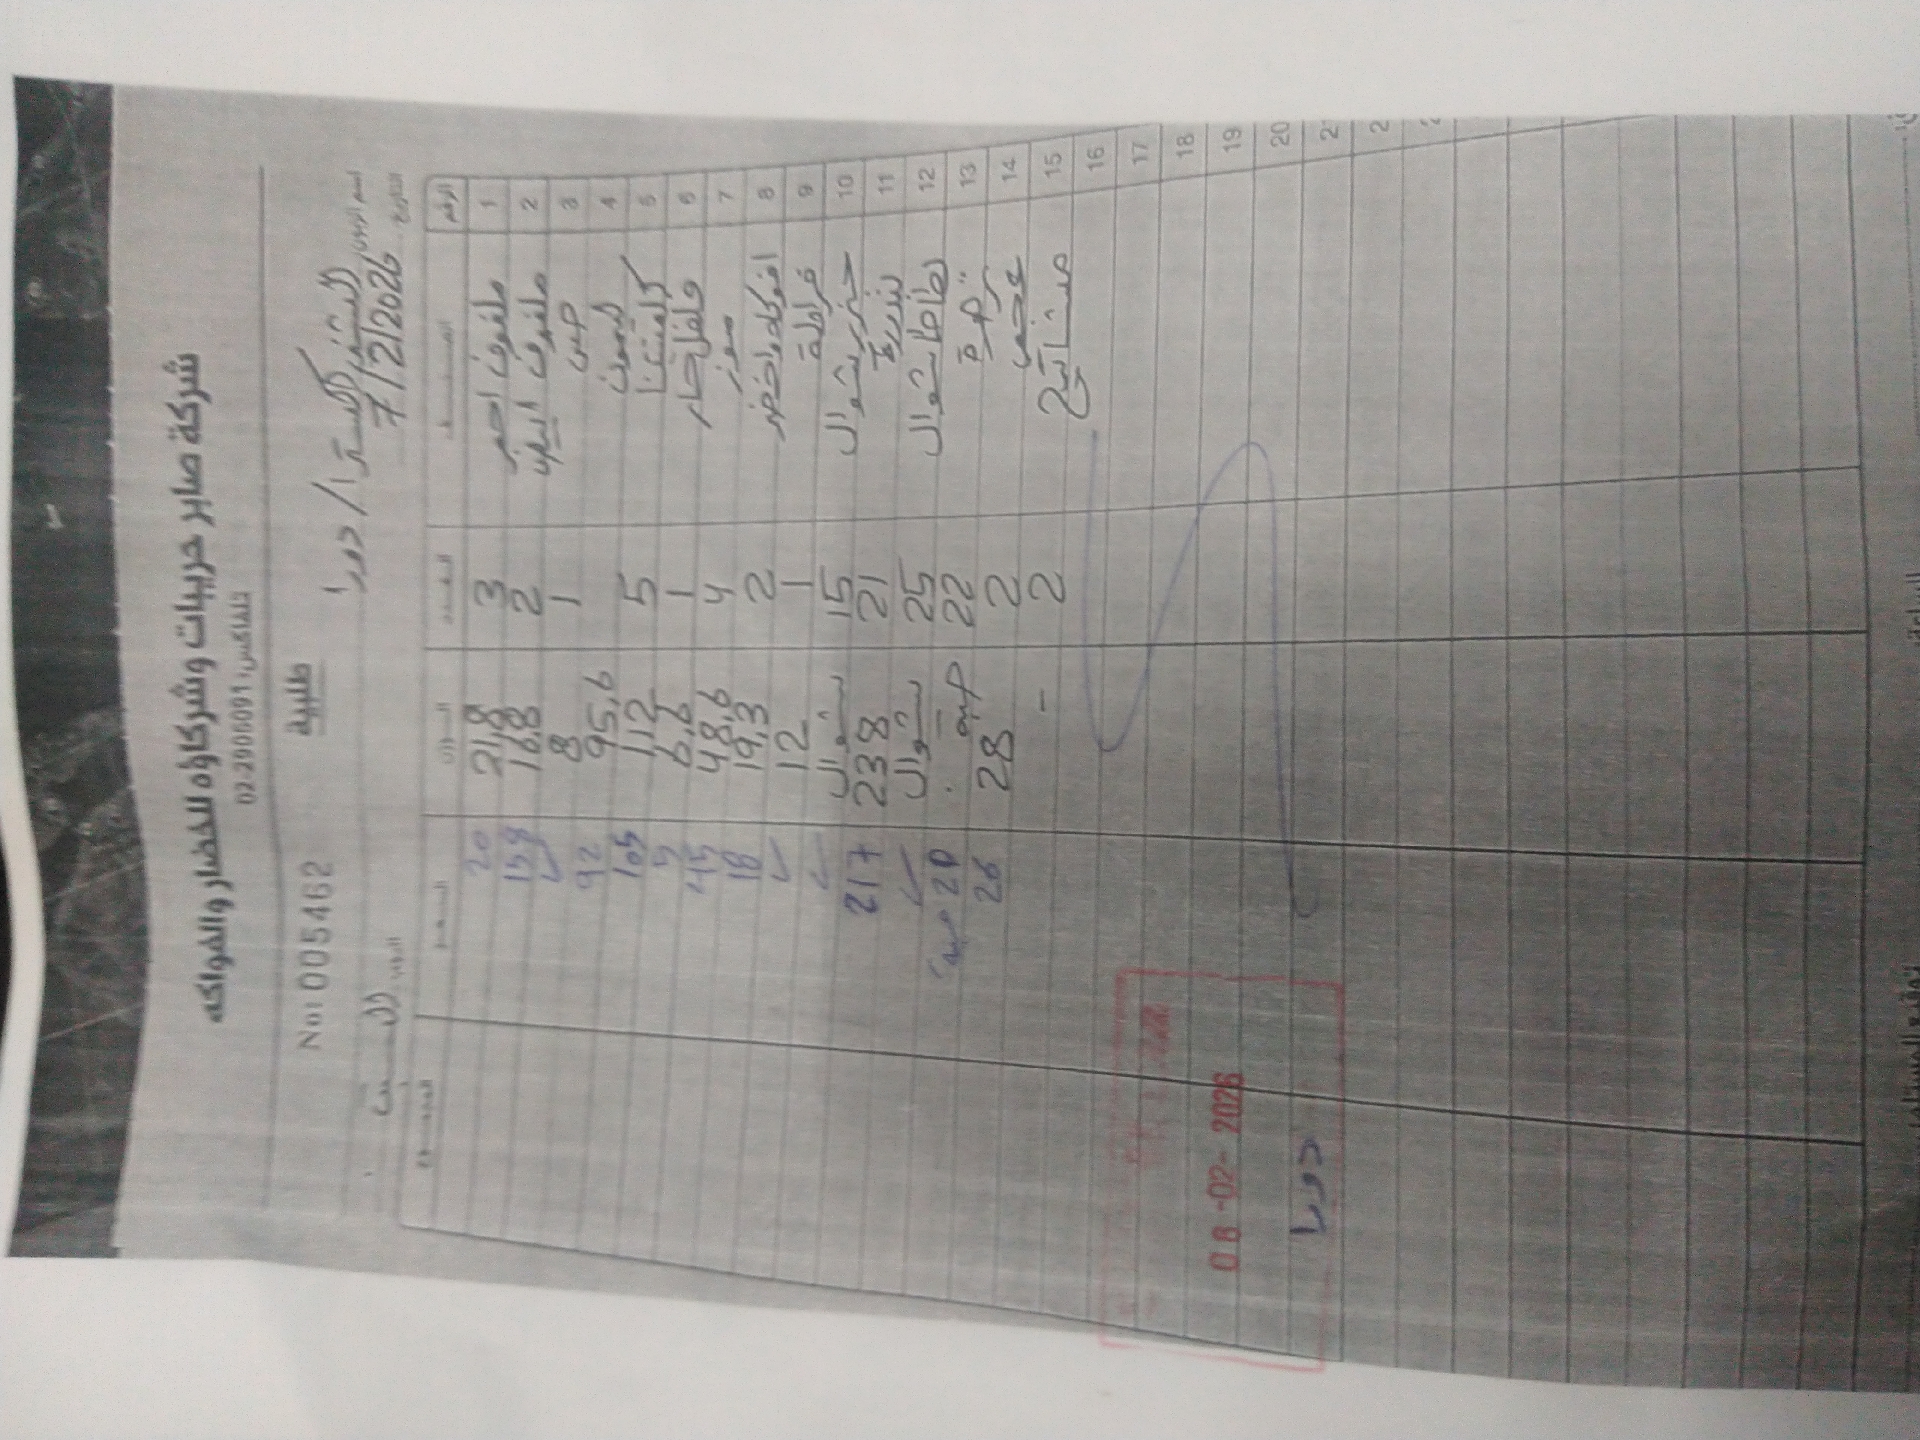 شركة صابر حريبات وشركاؤه للخضار والفواكه
تلفاكس: 02-2901091
No: 005462
طلبية
دورا
التاريخ: 7/2/2026 اليوم: السبت
الرقم الصنف العدد الوزن السعر
1 ملفوف احمر 3 21,8 20
2 ملفوف ابيض 2 16,8 15,8
3 1 8 ✓
4 ليمون 95,6 92
5 كلمنتينا 5 112 105
6 فلفل حار 1 6,6 5
7 موز 4 48,6 45
8 افوكادو اخضر 2 19,3 18
9 فراولة 1 12 ✓
10 شوال 15 شوال ✓
11 بندورة 21 238 217
12 بطاطا شوال 25 شوال ✓
13 22 20
14 2 28 26
15 2 -
16
17
18
19
20
08-02-2026
دورا